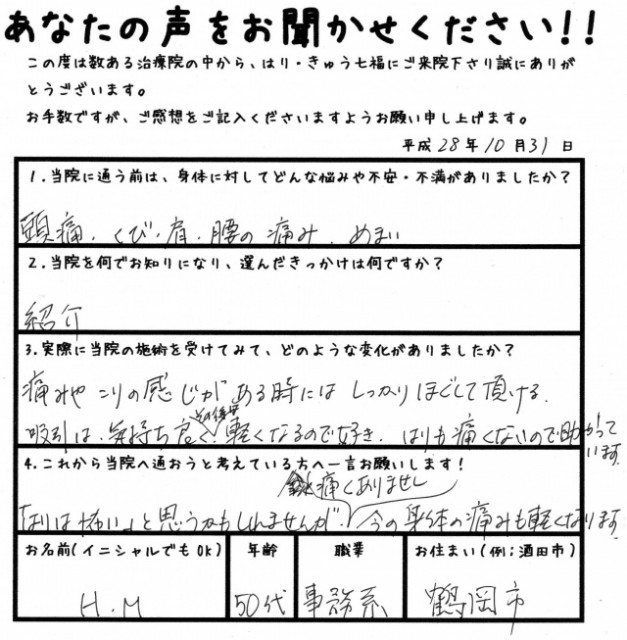 あなたの声をお聞かせください!!
この度は数ある治療院の中から、はり・きゅう七福にご来院下さり誠にありが
とうございます。
お手数ですが、ご感想をご記入くださいますようお願い申し上げます。
平成28年10月31日
1.当院に通う前は、身体に対してどんな悩みや不安・不満がありましたか?
頭痛・くび・肩・腰の痛み・めまい
2.当院を何でお知りになり、選んだきっかけは何ですか?
紹介
3.実際に当院の施術を受けてみて、どのような変化がありましたか?
痛みや こりの感じが ある時には しっかりほぐして頂ける。
その後
吸引は、気持ち良く、軽くなるので好き。 はりも痛くないので助かって
います。
4.これから当院へ通おうと考えている方へ一言お願いします!
痛くありません
「はりは怖い」と思うかもしれませんが、今の身体の痛みも軽くなります
お名前(イニシャルでもOK) 年齢 職業 お住まい(例;酒田市)
H.M 50代 事務系 鶴岡市